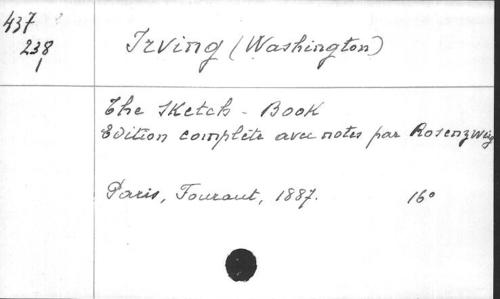 437
238
1
Irving (Washington)
The Sketch - Book
Edition complète avec notes par Rosenzweig
Paris, Fouraut, 1887. 16°